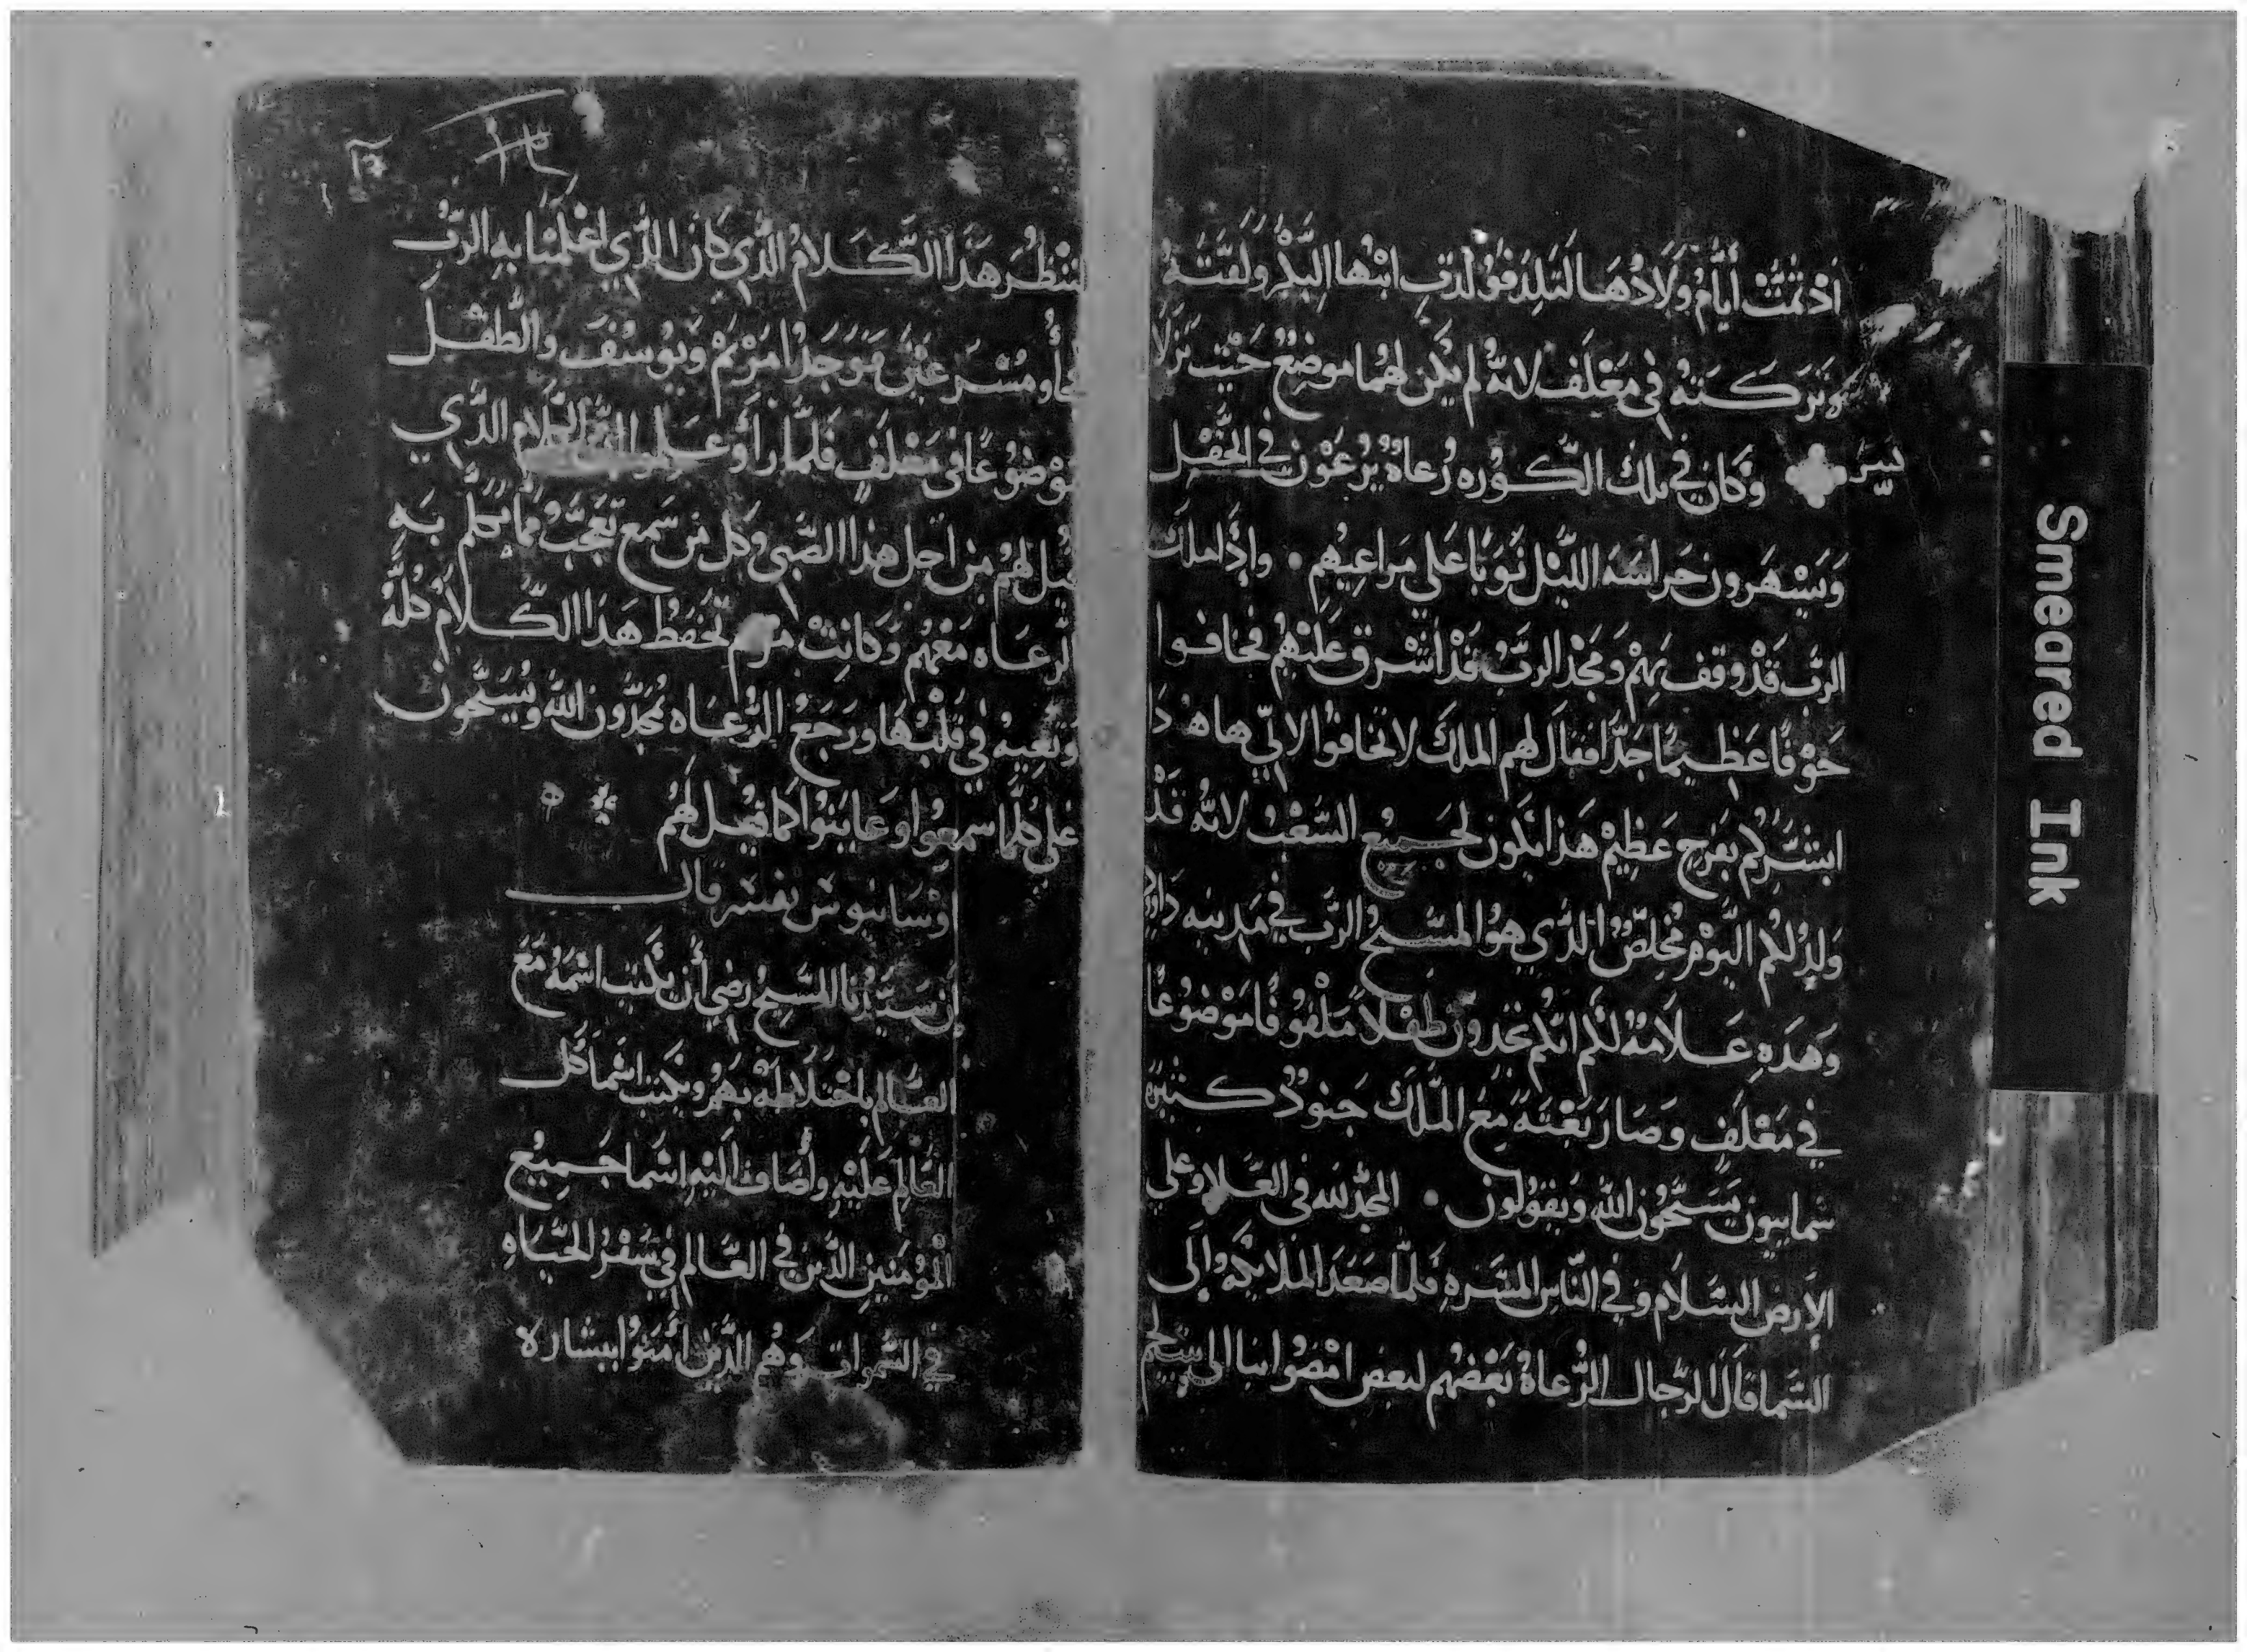 اذ تمت أيام ولادها لتلد فولدت ابنها البكر ولفتة
وتركته في معلف لانه لم يكن لهما موضع حيت نزلا
وكان في تلك الكوره رعاه يرعون في الحقل
ويسهرون حراسه الليل نوبا على مراعيهم • وإذا ملاك
الرب قد وقف بهم ومجد الرب قد اشرق عليهم فخافوا
خوفا عظيما جدا فقال لهم الملاك لا تخافوا لاني ها هو ذا
ابشركم بفرح عظيم هذا يكون لجميع الشعب لانه قد
ولد لكم اليوم مخلص الذي هو المسيح الرب في مدينه داود
وهذه علامة لكم انكم تجدون طفلا ملفوفا موضوعا
في معلف وصار بغتة مع الملاك جنود كثيره
سماييون يسبحون الله ويقولون • المجد لله في العلا وعلى
الارض السلام وفي الناس المسره فلما صعد الملايكه إلى
السما قال الرجال الرعاة بعضهم لبعض امضوا بنا الى بيت لحم
لننظر هذا الكلام الذي كان الذي اعلمنا به الرب
فجاو مسرعين فوجدوا مريم ويوسف والطفل
موضوعا في معلف فلما رأو علموا الكلام الذي
قيل لهم من اجل هذا الصبي وكل من سمع تعجب مما تكلم به
الرعاه معهم وكانت مريم تحفظ هذا الكلام كله
وتعيه في قلبها ورجع الرعاه يمجدون الله ويسبحون
على كلما سمعوا وعاينوا كما قيل لهم
وسانيوس يفسر قال
إن سيدنا المسيح رضي أن يكتب اسمه مع
العالم باختلاطه بهم ويكتب اسما كل
العالم عليه وأضاف اليه اسما جميع
المؤمنين الذين في العالم في سفر الحياه
في السموات وهم الذين أمنوا ببشاره
Smeared Ink